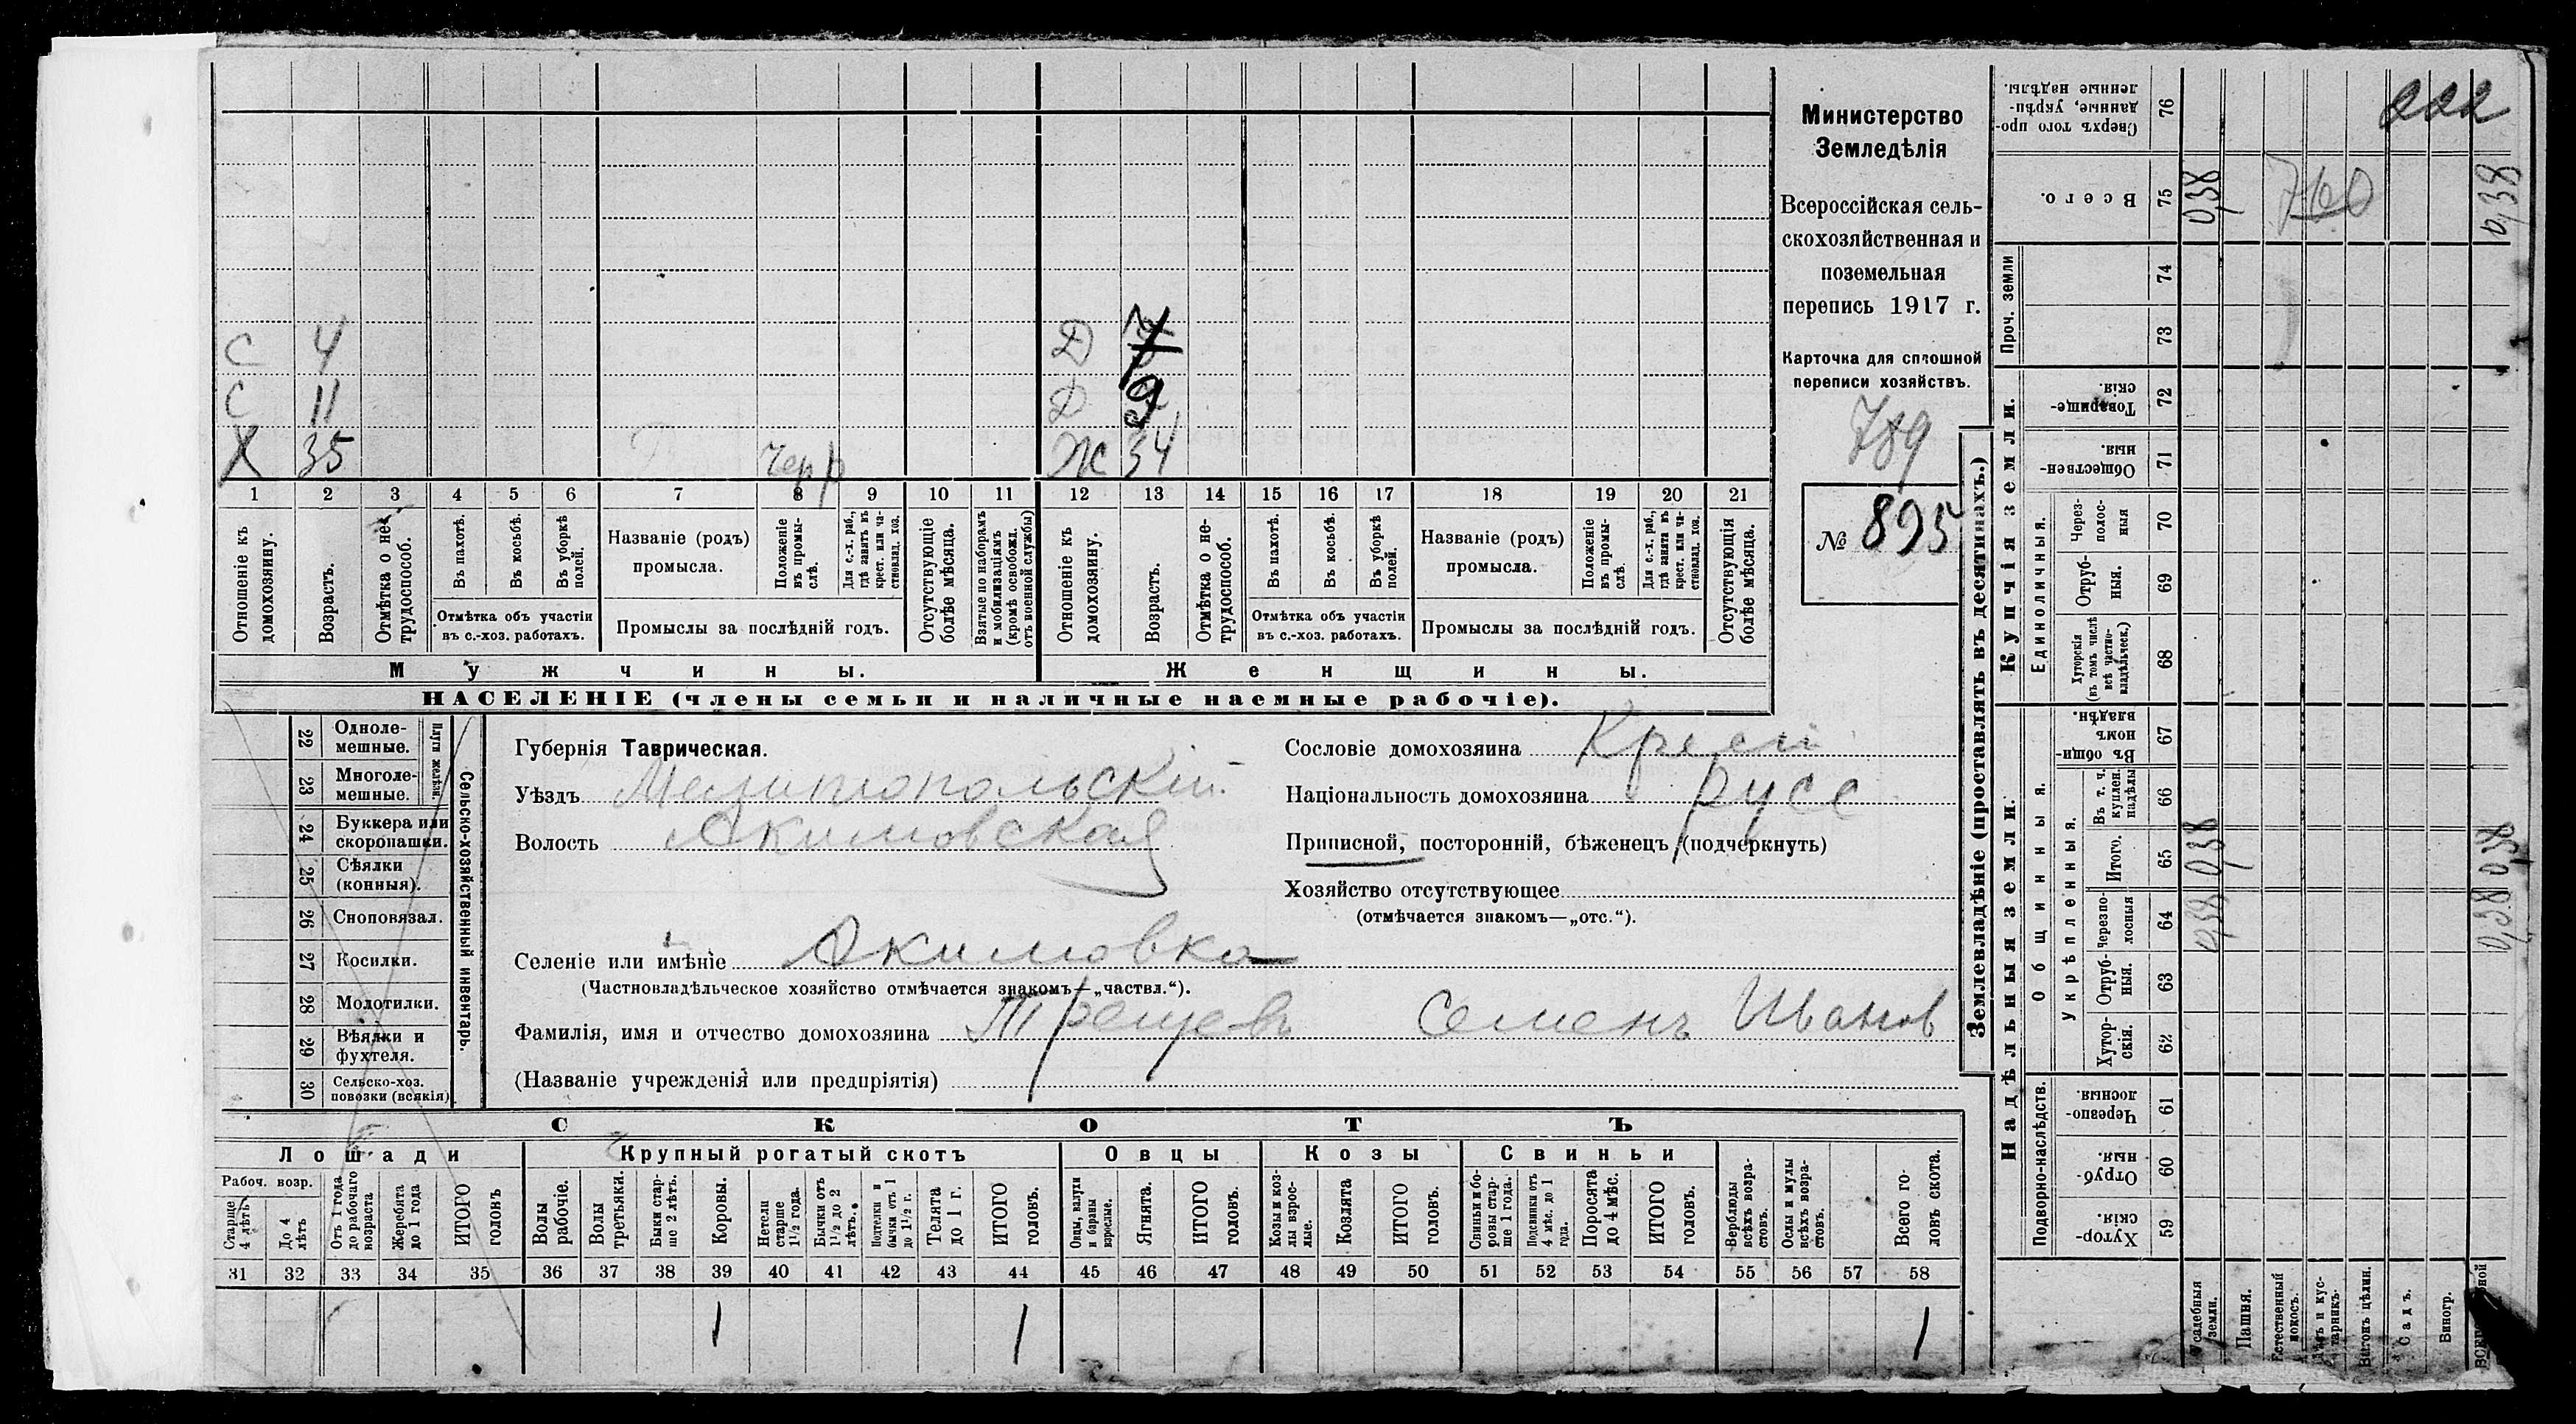 С 4 Д
С 11 Д 9
Х 35 Ж 34
1 2 3 4 5 6 7 8 9 10 11 12 13 14 15 16 17 18 19 20 21
Отношеніе къ домохозяину.
Возрастъ.
Отмѣтка о не-трудоспособ.
Въ пахотѣ.
Въ косьбѣ.
Въ уборкѣ полей.
Отмѣтка объ участіи
въ с.-хоз. работахъ.
Названіе (родъ)
промысла.
Положеніе въ промы-слѣ.
Для с.-х. раб., гдѣ занятъ въ крест. или ча-стновлад. хоз.
Промыслы за послѣдній годъ.
Отсутствующіе болѣе мѣсяца.
Взятые по наборамъ и мобилизаціямъ (кромѣ освобожд. отъ военной службы)
Отношеніе къ домохозяину.
Возрастъ.
Отмѣтка о не-трудоспособ.
Въ пахотѣ.
Въ косьбѣ.
Въ уборкѣ полей.
Отмѣтка объ участіи
въ с.-хоз. работахъ.
Названіе (родъ)
промысла.
Положеніе въ промы-слѣ.
Для с.-х. раб., гдѣ занята въ крест. или ча-стновлад. хоз.
Промыслы за послѣдній годъ.
Отсутствующія болѣе мѣсяца.
Мужчины. Женщины.
НАСЕЛЕНІЕ (члены семьи и наличные наемные рабочіе).
Министерство
Земледѣлія
Всероссійская сель-
скохозяйственная и
поземельная
перепись 1917 г.
Карточка для сплошной
переписи хозяйствъ.
789
№ 895
22 Одноле-мешные.
23 Многоле-мешные.
Плуги желѣзн.
24 Буккера или скоропашки.
25 Сѣялки (конныя).
26 Сноповязал.
27 Косилки.
28 Молотилки.
29 Вѣялки и фухтеля.
30 Сельско-хоз. повозки (всякія)
Сельско-хозяйственный инвентарь.
Губернія Таврическая.
Уѣздъ Мелитопольскій
Волость Акимовская
Селеніе или имѣніе Акимовка
(Частновладѣльческое хозяйство отмѣчается знакомъ—„частвл.“).
Фамилія, имя и отчество домохозяина Трещевъ Семенъ Иванов
(Названіе учрежденія или предпріятія)
Сословіе домохозяина Крест
Національность домохозяина русс
Приписной, посторонній, бѣженецъ (подчеркнуть)
Хозяйство отсутствующее
(отмѣчается знакомъ—„отс.“).
СКОТЪ
Лошади Крупный рогатый скотъ Овцы Козы Свиньи
Рабоч. возр.
Старше 4 лѣтъ
До 4 лѣтъ
Отъ 1 года до рабочаго возраста
Жеребята до 1 года
ИТОГО головъ
Волы рабочіе.
Волы третьяки.
Быки стар-ше 2 лѣтъ.
Коровы.
Нетели старше 1½ года.
Бычки отъ 1½ до 2 лѣтъ.
Подтелки и бычки отъ 1 до 1½ г.
Телята до 1 г.
ИТОГО головъ.
Овцы, валухи и бараны взрослые.
Ягнята.
ИТОГО головъ.
Козы и коз-лы взрос-лые.
Козлята
ИТОГО головъ.
Свиньи и бо-ровы стар-ше 1 года.
Подсвинки отъ 4 мѣс. до 1 года.
Поросята до 4 мѣс.
ИТОГО головъ.
Верблюды всѣхъ возра-стовъ.
Ослы и мулы всѣхъ возра-стовъ.
Всего го-ловъ скота.
31 32 33 34 35 36 37 38 39 40 41 42 43 44 45 46 47 48 49 50 51 52 53 54 55 56 57 58
1 1 1
Землевладѣніе (проставлять въ десятинахъ.)
Надѣльныя земли. Купчія земли. Проч. земли
Подворно-наслѣдств.
Общинныя.
Укрѣпленныя.
Единоличныя.
Сверхъ того про-данные, укрѣп-ленные надѣлы. 76
Всего. 75 0,38 760 0,38
74
73
Товарище-скія. 72
Обществен-ныя 71
Через-полос-ныя 70
Отруб-ныя. 69
Хуторскія (въ томъ числѣ всѣ частно-владѣльческ.) 68
Въ общи-номъ владѣн. 67
Въ т. ч. куплен. надѣлы 66
Итого. 65 0,38 0,38
Черезпо-лосныя 64 0,38 0,38
Отруб-ныя. 63
Хутор-скія. 62
Черезпо-лосныя. 61
Отруб-ныя. 60
Хутор-скія. 59
Усадебныя земли.
Пашня.
Естественный покосъ.
Лѣсъ и кус-тарникъ.
Выгонъ цѣлин.
Садъ.
Виногр.